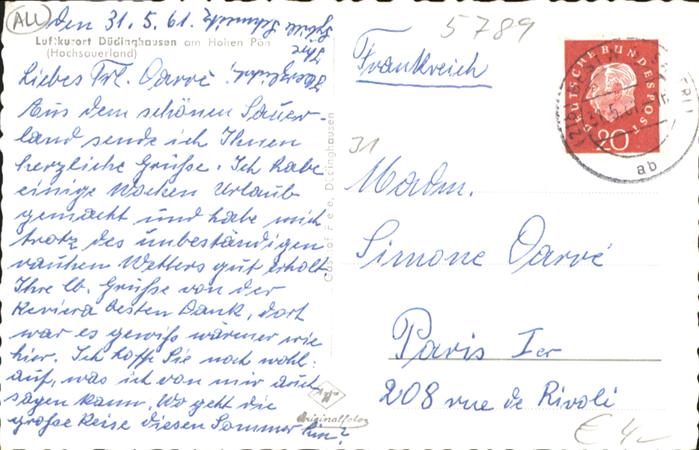 den 31. 5. 61.
Luftkurort Düdinghausen am Hohen Pön
(Hochsauerland)
Liebes Frl. Darré
Aus dem schönen Sauer-
land sende ich Ihnen
herzliche Grüße. Ich habe
einige Wochen Urlaub
gemacht und habe mich
trotz des unbeständigen
rauhen Wetters gut erholt
Ihre lb. Grüße von der
Reviera besten Dank, dort
war es gewiß wärmer wie
hier. Ich hoffe Sie noch wohl-
auf, was ich von mir auch
sagen kann. Wo geht die
große Reise diesen Sommer hin?
Ihre
Originalfoto
ALU
5789
Frankreich
31
Madm.
Simone Darré
Paris Ier
208 rue de Rivoli
€ 4,-
DEUTSCHE BUNDESPOST
20
ab